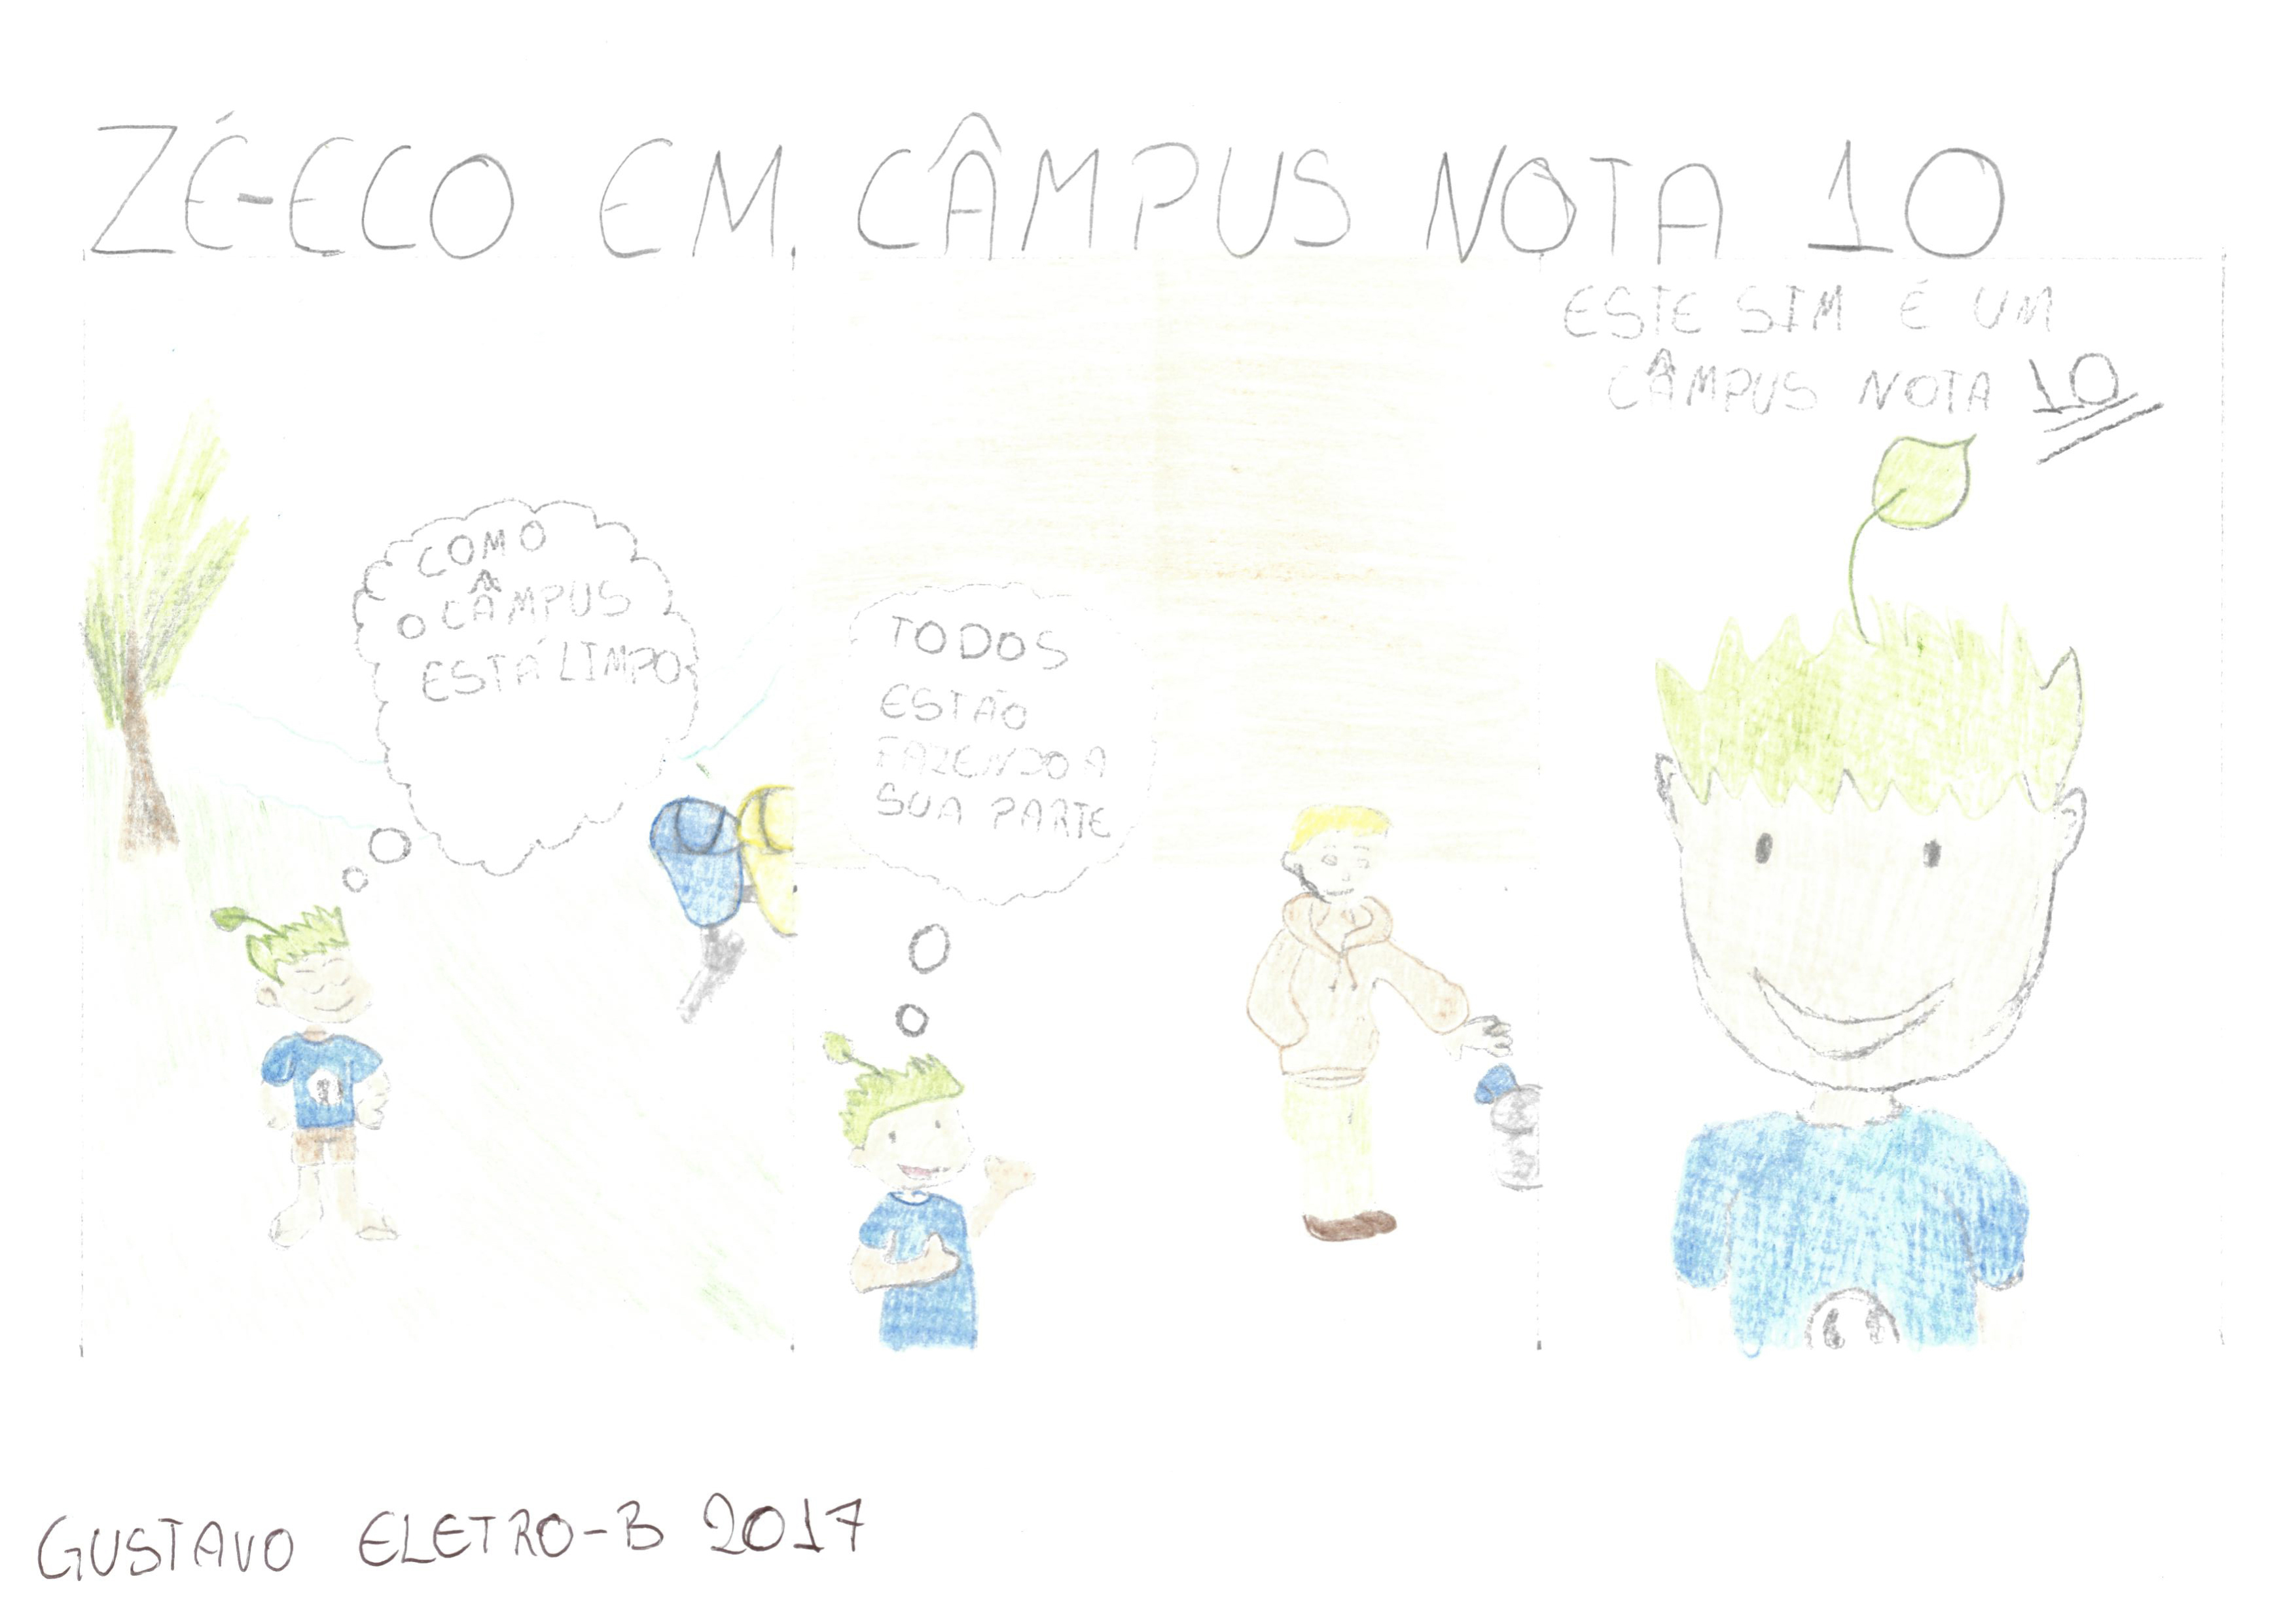 ZÉ-ECO EM CÂMPUS NOTA 10
COMO
O CÂMPUS
ESTÁ LIMPO
TODOS
ESTÃO
FAZENDO A
SUA PARTE
ESTE SIM É UM
CÂMPUS NOTA 10
GUSTAVO ELETRO-B 2017